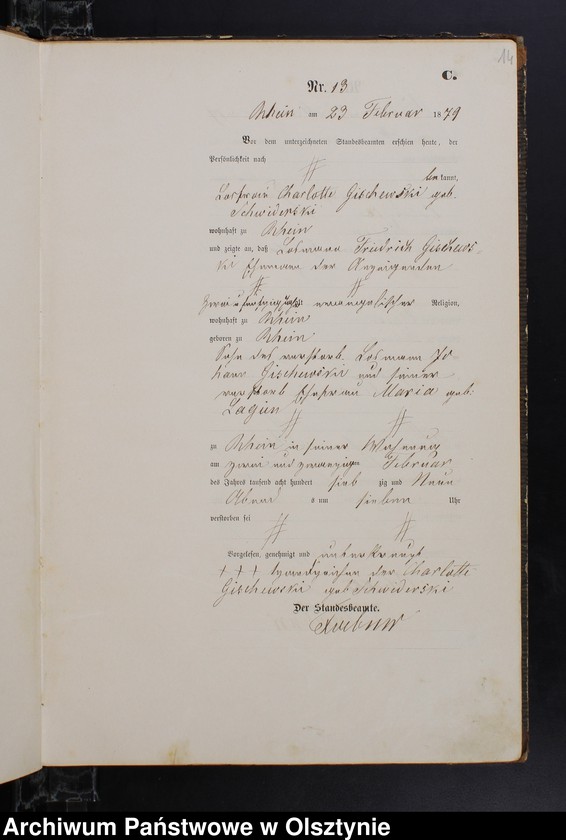 14
C.
Nr. 13
Rhein am 23 Februar 1879
Vor dem unterzeichneten Standesbeamten erschien heute, der
Persönlichkeit nach
bekannt,
Losfrau Charlotte Gischewski geb.
Schwiderski
wohnhaft zu Rhein
und zeigte an, daß Losmann Friedrich Gischews-
ki Ehemann der Anzeigenden
zwei u fünfzig Jahr evangelischer Religion,
wohnhaft zu Rhein
geboren zu Rhein
Sohn des verstorb. Losmann Jo-
hann Gischewski und seiner
verstorb Ehefrau Maria geb:
Lagun
zu Rhein in seiner Wohnung
am zwei und zwanzigsten Februar
des Jahres tausend acht hundert sieb zig und Neun
Abend s um sieben Uhr
verstorben sei
Vorgelesen, genehmigt und unterkreuzt
+ + + Handzeichen der Charlotte
Gischewski geb Schwiderski
Der Standesbeamte.
Archiwum Państwowe w Olsztynie